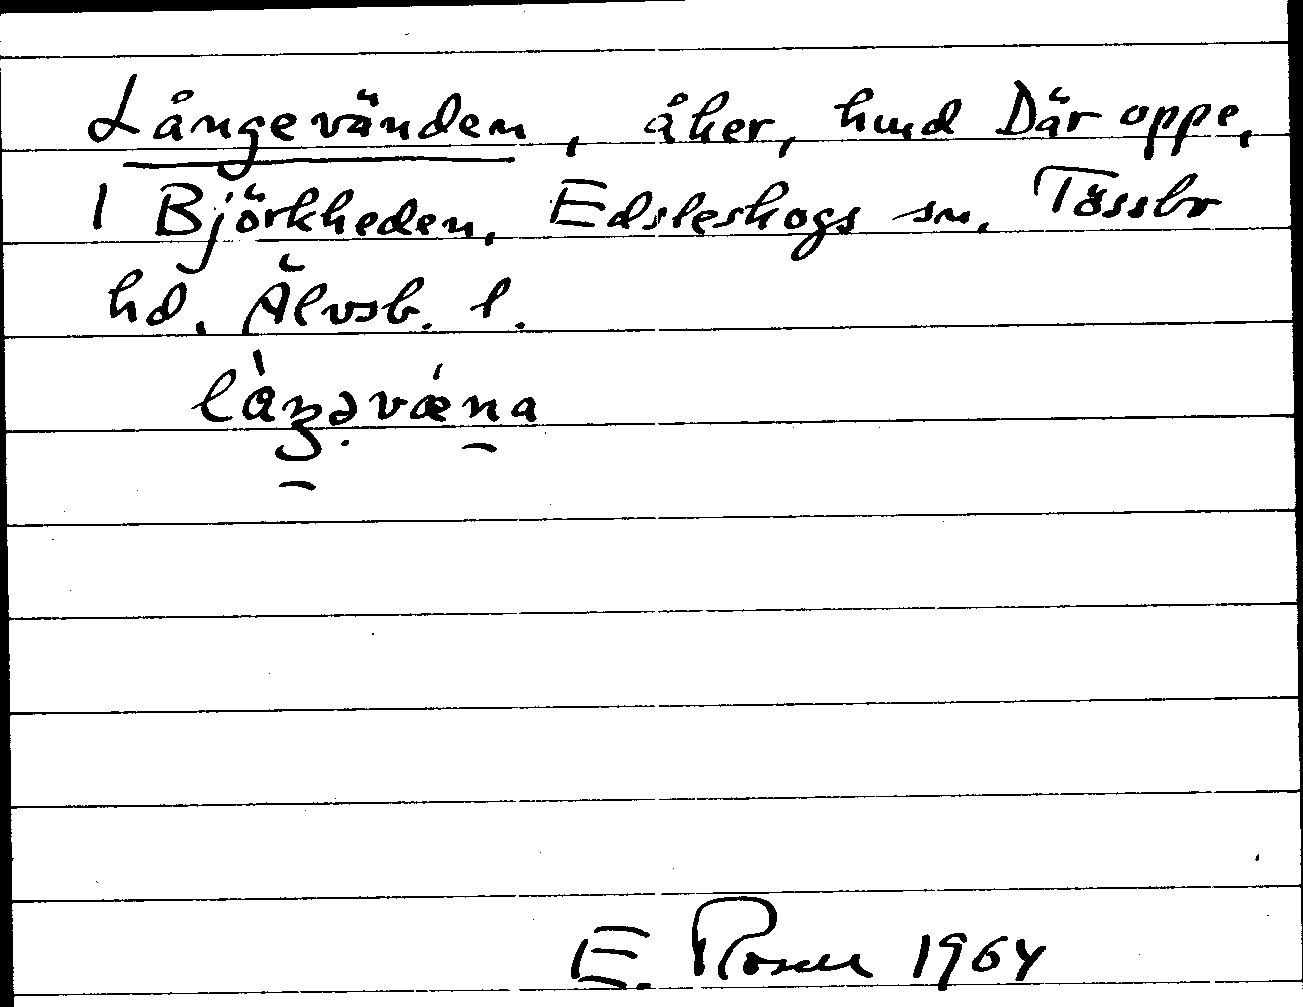 Långevänden, åker, hmd Där oppe,
1 Björkheden, Edsleskogs sn. Tössbo
hd. Älvsb. l.
E. Rosell 1964